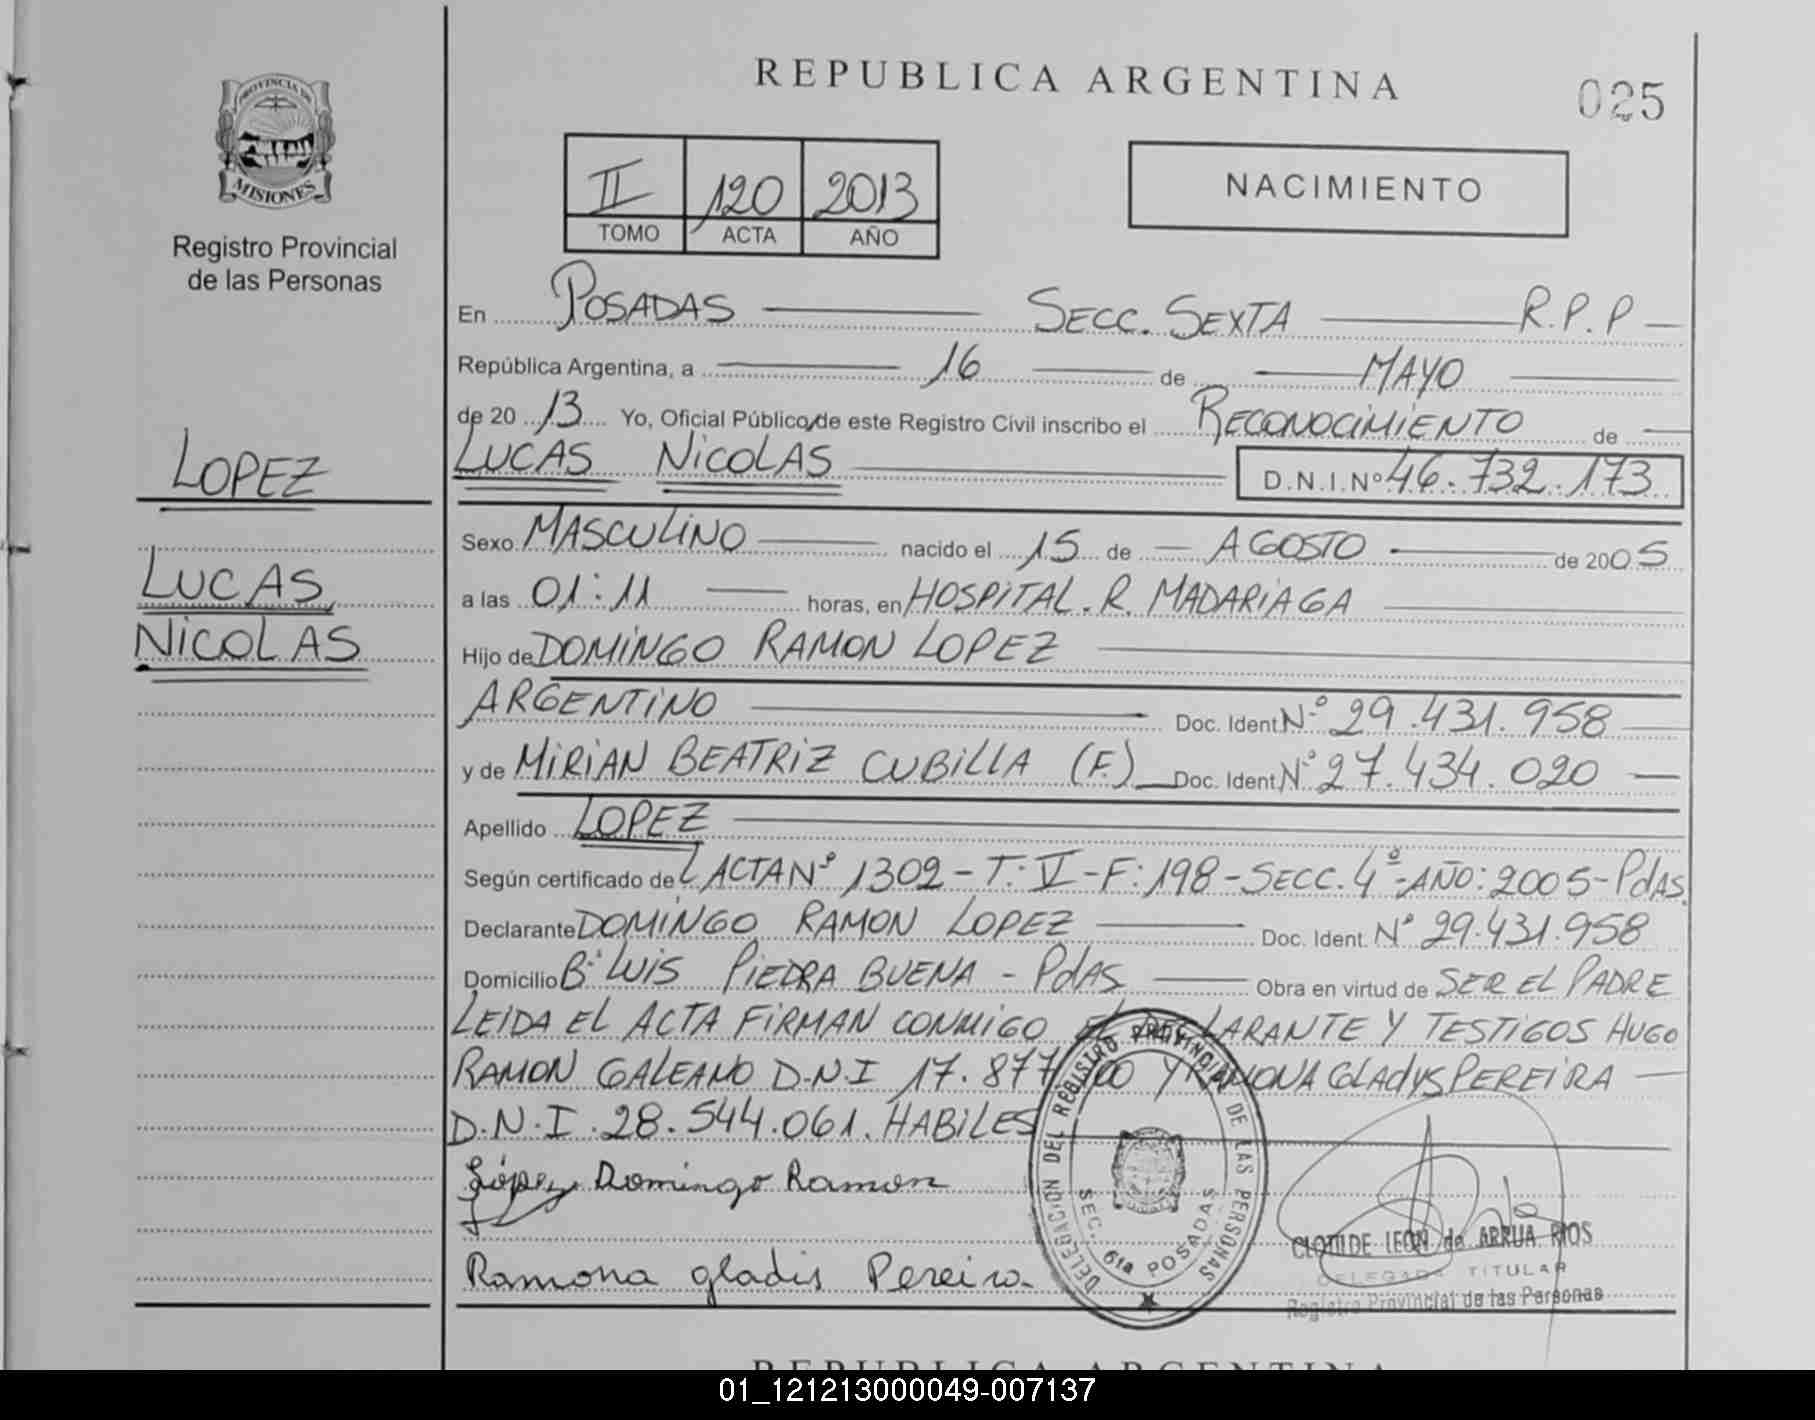 REPUBLICA ARGENTINA
025
PROVINCIA DE
MISIONES
Registro Provincial
de las Personas
II 120 2013
TOMO ACTA AÑO
NACIMIENTO
En POSADAS SECC. SEXTA R.P.P
República Argentina, a 16 de MAYO
de 2013 Yo, Oficial Público/de este Registro Civil inscribo el RECONOCIMIENTO de
LUCAS NICOLAS D.N.I.Nº 46.732.173
LOPEZ
LUCAS
NICOLAS
Sexo MASCULINO nacido el 15 de AGOSTO de 2005
a las 01:11 horas, en HOSPITAL.R. MADARIAGA
Hijo de DOMINGO RAMON LOPEZ
ARGENTINO Doc. Ident. Nº 29.431.958
y de MIRIAN BEATRIZ CUBILLA (F.) Doc. Ident. Nº 27.434.020
Apellido LOPEZ
Según certificado del ACTA Nº 1302-T:V-F:198-SECC.4º-AÑO:2005-PdAS.
Declarante DOMINGO RAMON LOPEZ Doc. Ident. Nº 29.431.958
Domicilio Bº LUIS PIEDRA BUENA - PdAS Obra en virtud de SER EL PADRE
LEIDA EL ACTA FIRMAN CONMIGO EL Y TESTIGOS HUGO
RAMON GALEANO D.N.I 17.877 Y RAMONA GLADYS PEREIRA
D.N.I.28.544.061.HABILES
López Domingo Ramon
Ramona gladis Pereira
DELEGACION DEL REGISTRO PROVINCIAL DE LAS PERSONAS
SEC. 6ta POSADAS
CLOTILDE LEON de ARRUA RIOS
DELEGADA TITULAR
Registro Provincial de las Personas
REPUBLICA ARGENTINA
01_121213000049-007137